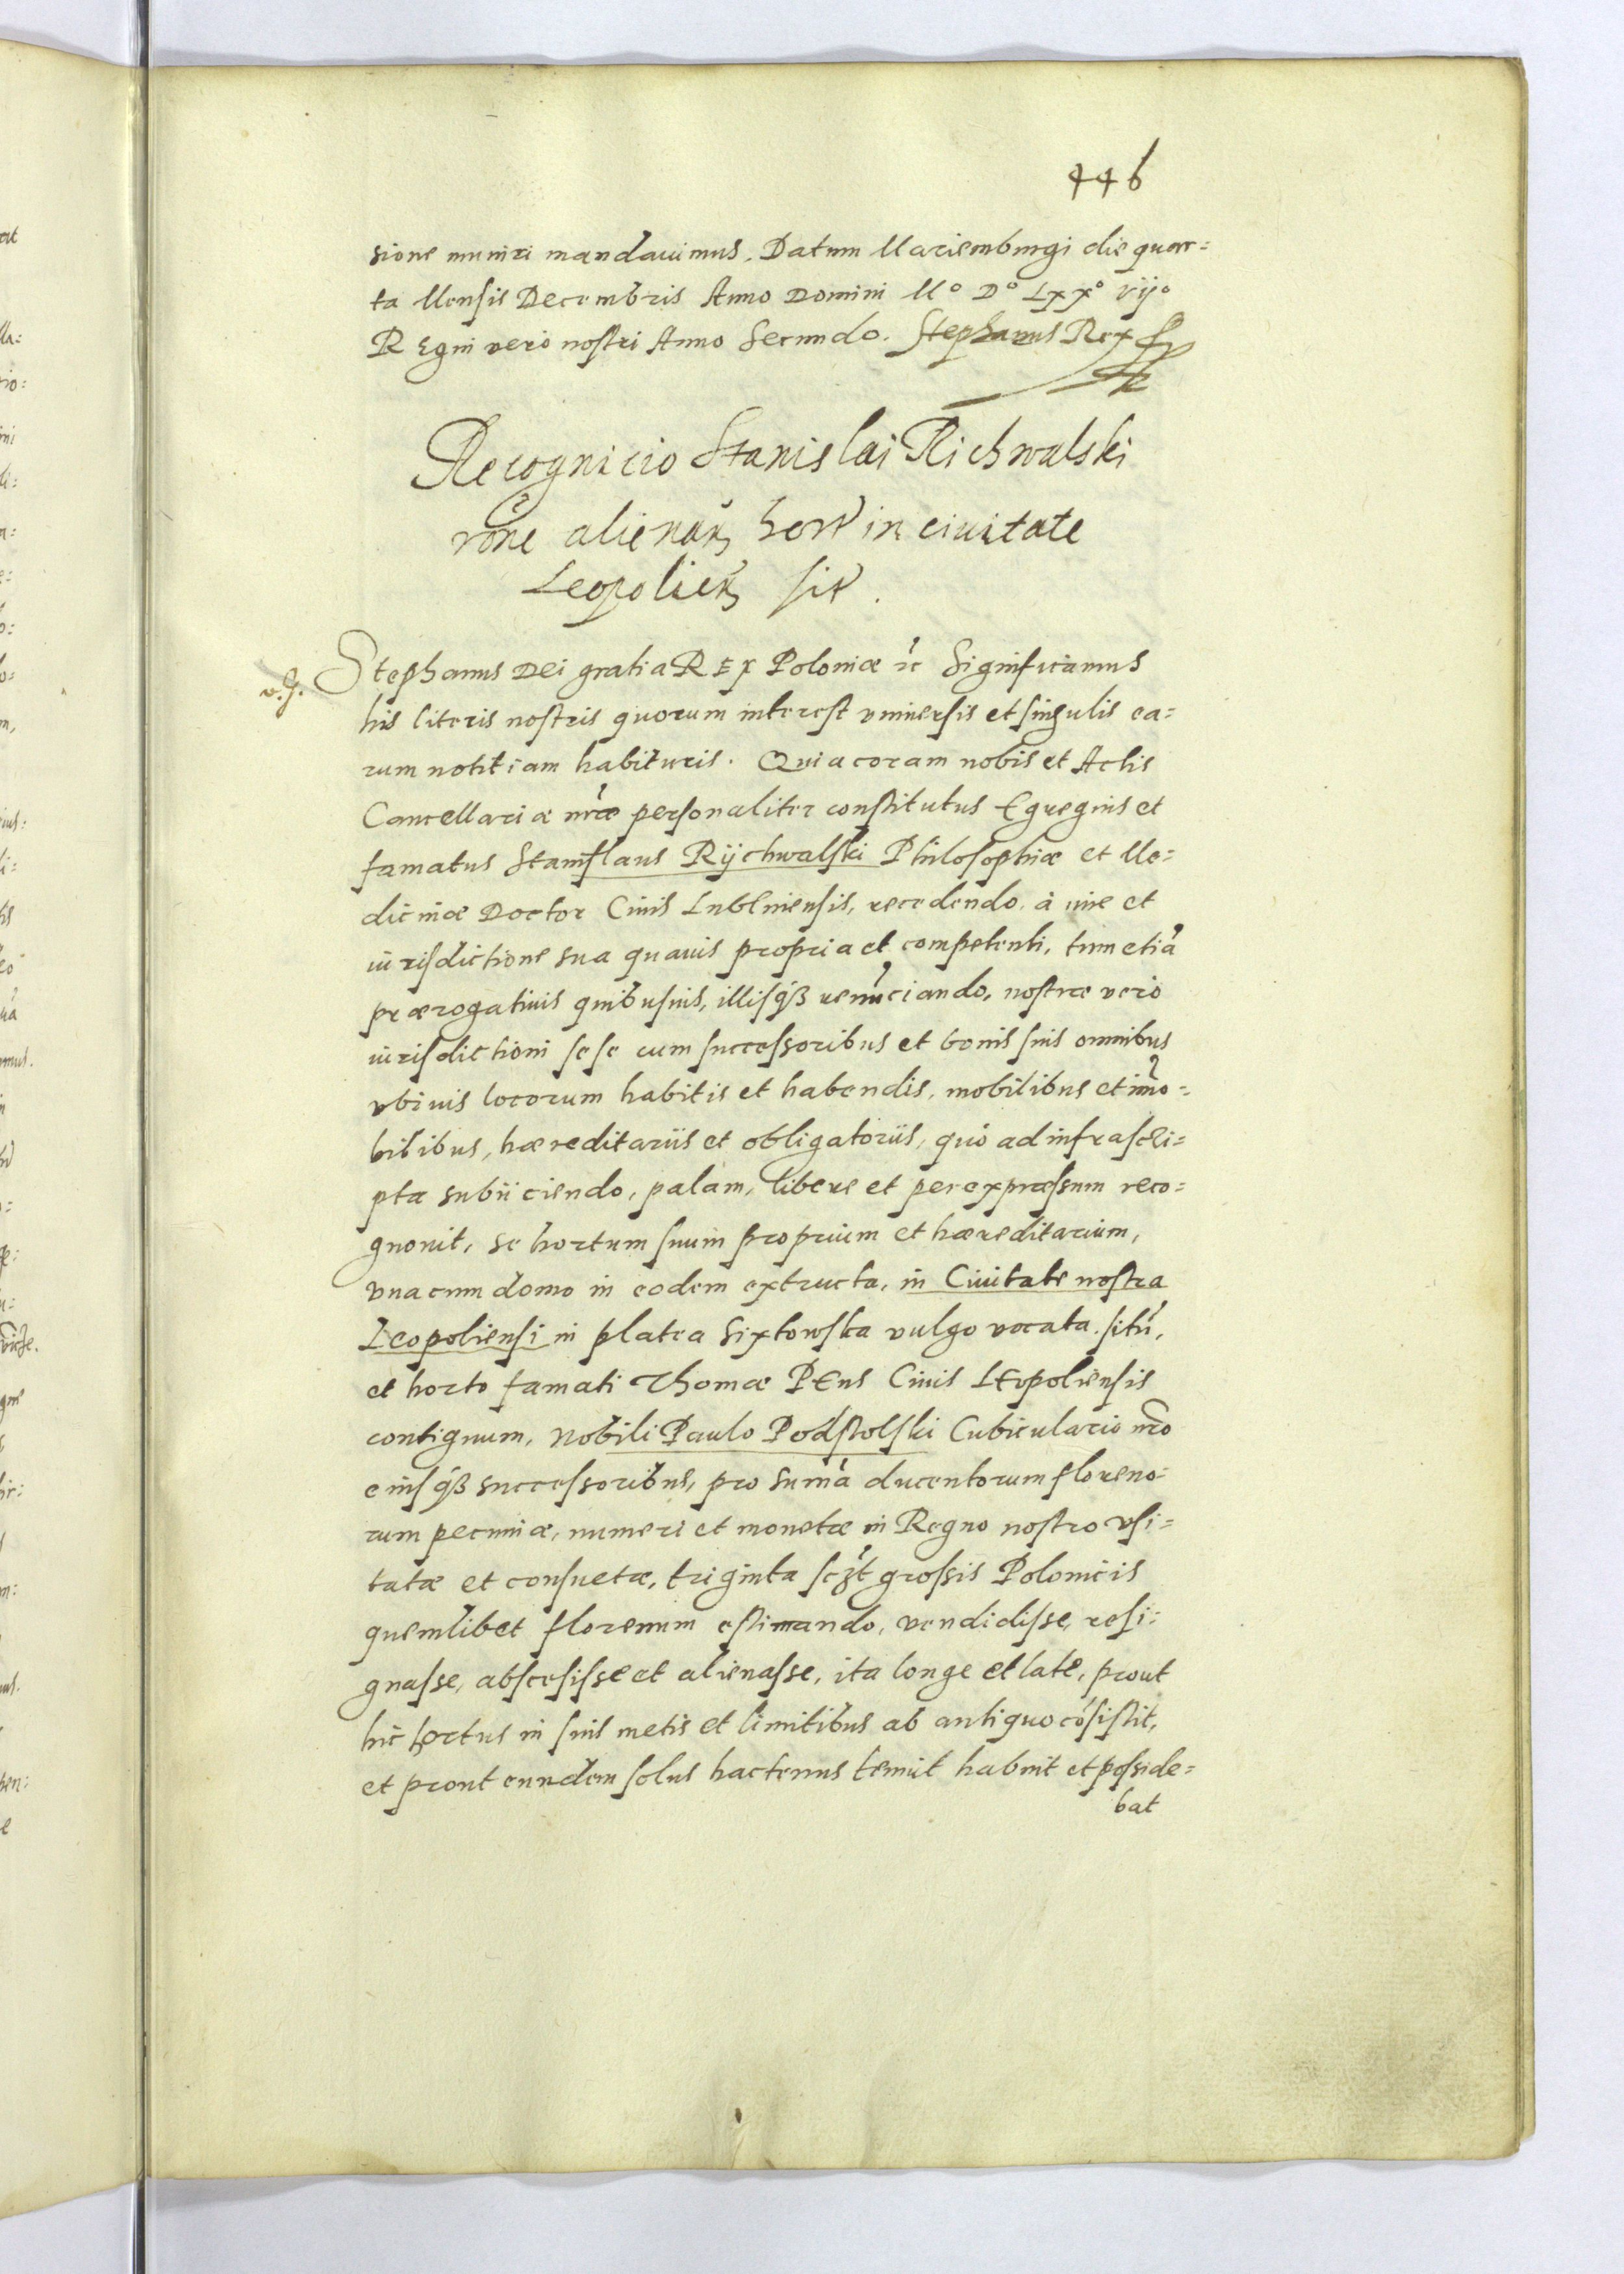 446
sione muniri mandauimus. Datum Mariemburgi die quar=
ta Mensis Decembris Anno Domini Mº Dº Lxxº vijº
Regni vero nostri Anno Secundo. Stephanus Rex
Recognicio Stanislai Richwalski
rōne alienań hort in ciuitate
Leopolień sit.
Stephanus Dei gratia Rex Poloniæ ꝛc Significamus
his literis nostris quorum interest vniuersis et singulis ea=
rum notitiam habituris. Quia coram nobis et Actis
Cancellariæ nr̃æ personaliter constitutus Egregius et
famatus Stanislaus Rijchwalski Philosophiæ et Me=
dicinæ Doctor Ciuis Lubliniensis, recedendo à iure et
iurisdictione sua quauis propria et competenti, tum etiā
prærogatiuis quibusuis, illisqȝ renūciando, nostræ verò
iurisdictioni sese cum successoribus et bonis suis omnibus
vbiuis locorum habitis et habendis, mobilibus et im̃o=
bilibus, hæreditariis et obligatoriis, quò ad infrascri=
pta subiiciendo, palàm, libere et per expræssum reco=
gnouit, se hortum suum proprium et hæreditarium,
vna cum domo in eodem extructa, in Ciuitate nostra
Leopoliensi in platea Sixtowska vulgo vocata sitū,
et horto famati Thomæ Pens Ciuis Leopoliensis
contiguum, Nobili Paulo Podstolski Cubiculario nr̃o
eiusqȝ successoribus, pro sum̃a ducentorum floreno=
rum pecuniæ, numeri et monetæ in Regno nostro vsi=
tatæ et consuetæ, triginta sczt grossis Polonicis
quemlibet florenum estimando, vendidisse, resi=
gnasse, abscesisse et alienasse, ita longe et late, prout
hic hortus in suis metis et limitibus ab antiquo cōsistit,
et prout eundem solus hactenus tenuit habuit et posside=
bat